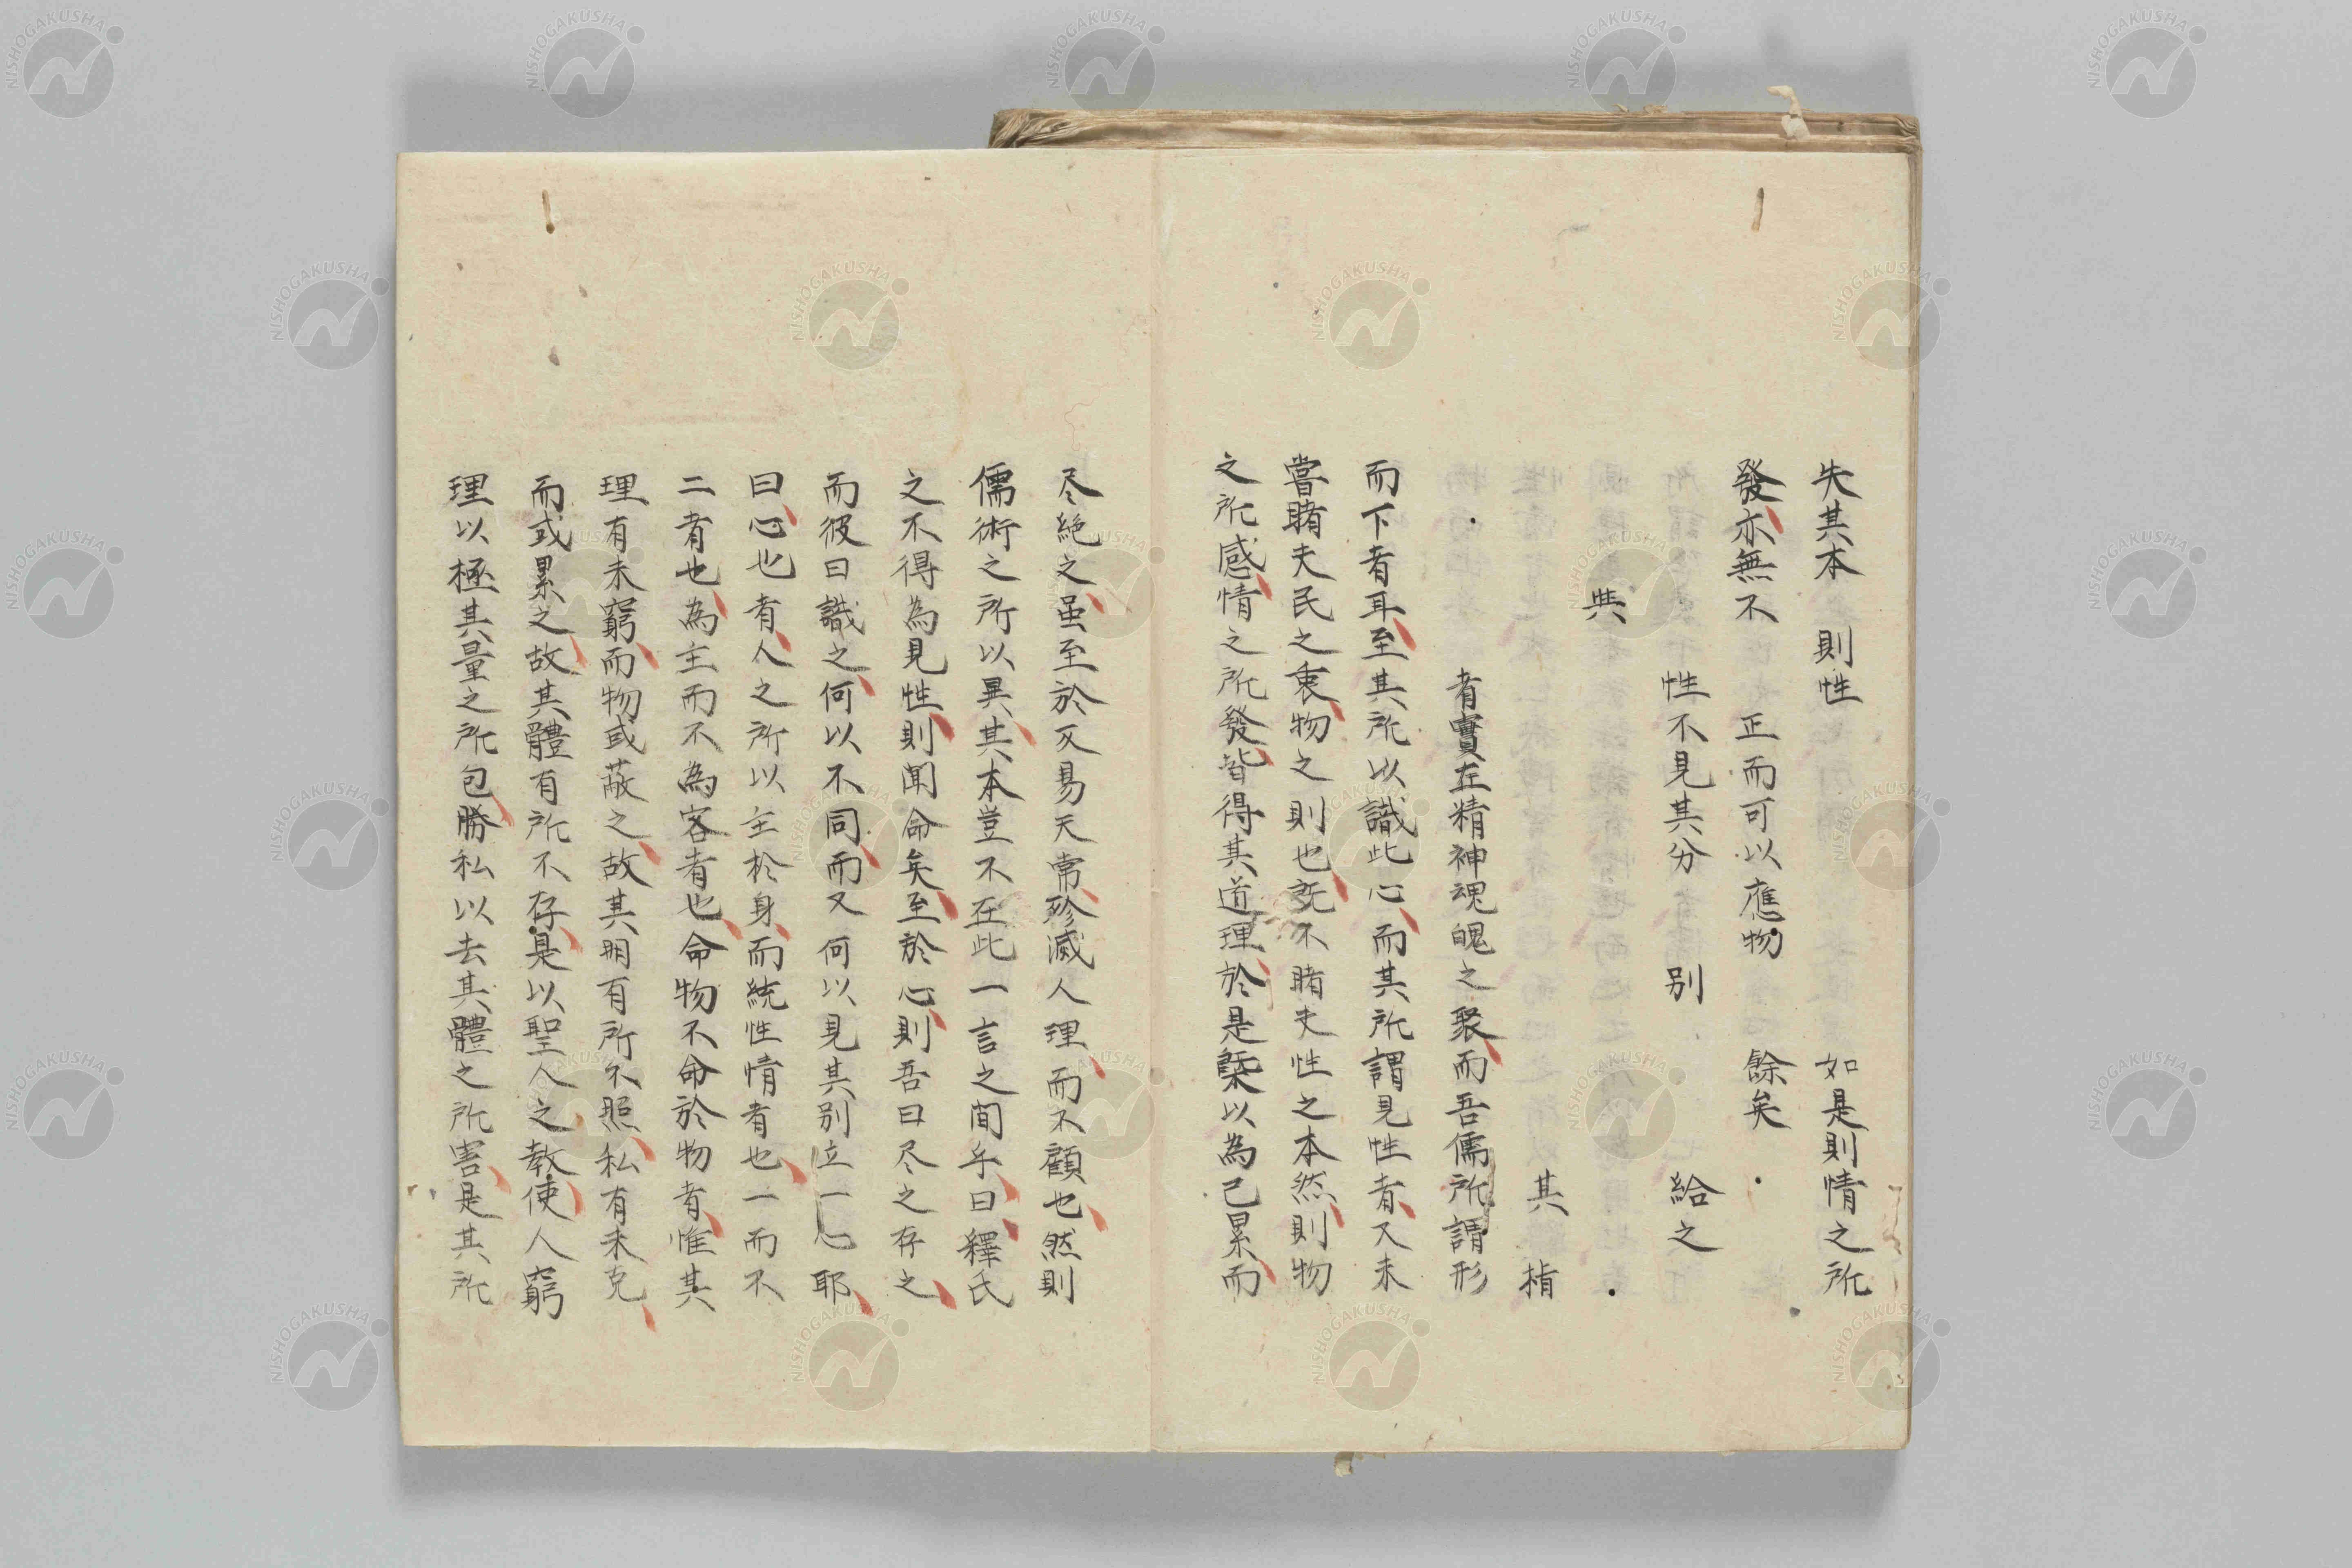 失其本 則性 如是則情之所
發亦無不 正而可以應物 餘矣
性不見其分 別 給之
其
其 楕
者實在精神魂魄之聚而吾儒所謂形
而下者耳至其所以識此心而其所謂見性者又未
嘗睹夫民之衷物之則也既不睹夫性之本然則物
之所感情之所發皆得其道理於是槩以為己累而
尽絶之虽至於反易天常殄滅人理而不顧也然則
儒術之所以異其本豈不在此一言之間乎曰釋氏
之不得為見性則聞命矣至於心則吾曰尽之存之
而彼曰識之何以不同而又何以見其別立一心耶
曰心也者人之所以主於身而統性情者也一而不
二者也為主而不為客者也命物不命於物者惟其
理有未窮而物或蔽之故其明有所不照私有未克
而或累之故其體有所不存是以聖人之教使人窮
理以極其量之所包勝私以去其體之所害是其所
NISHOGAKUSHA